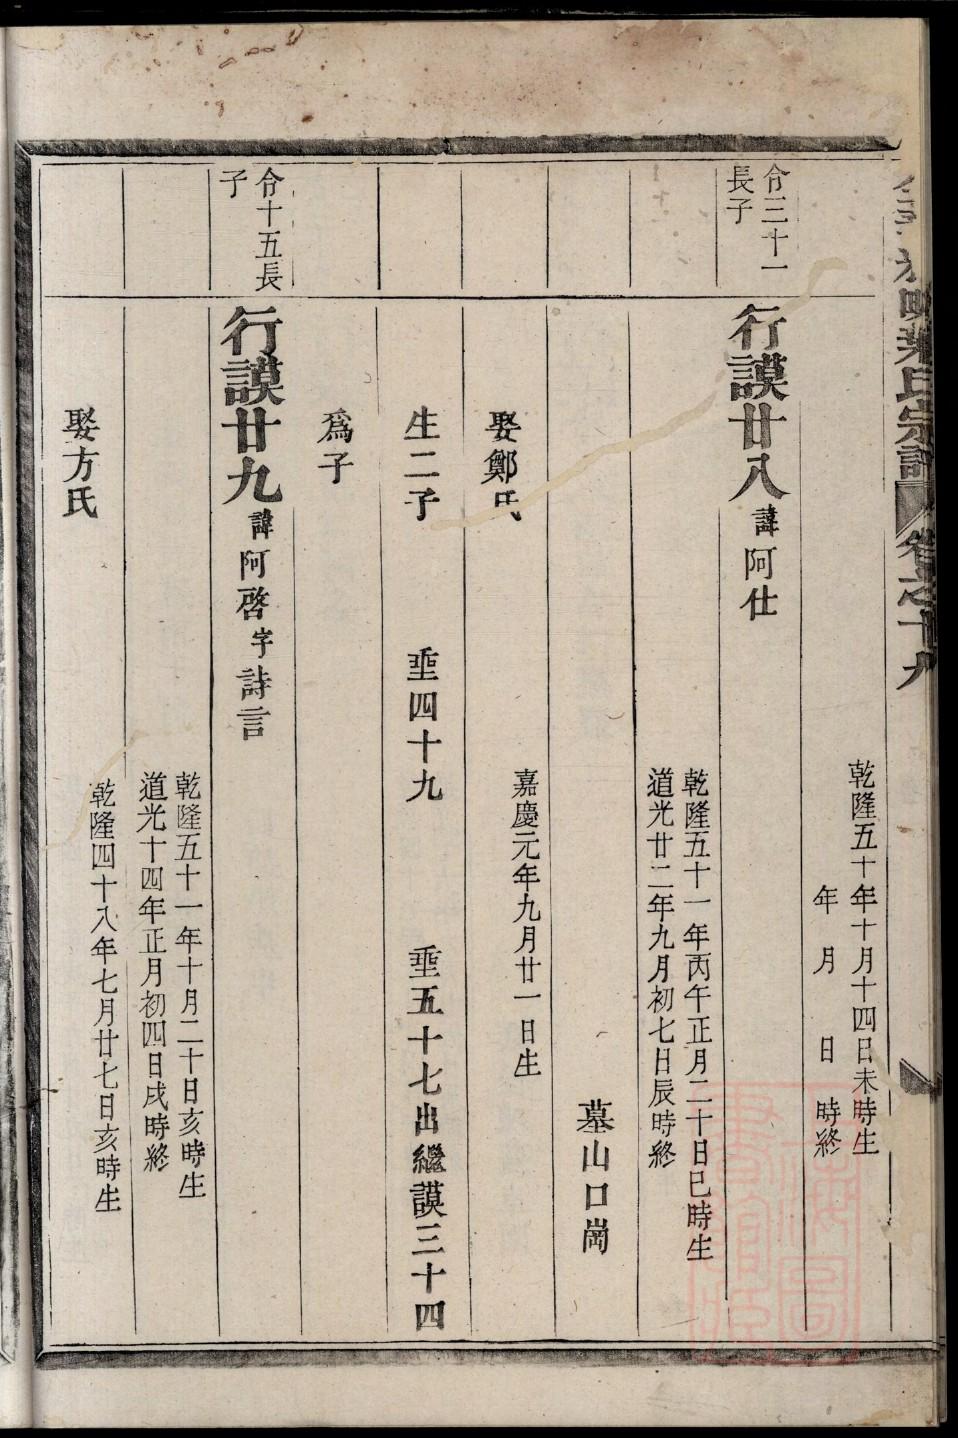 氏宗譜 卷之十九
乾隆五十年十月十四日未時生
年 月 日 時終
令三十一
長子
行謨廿八 諱阿仕
乾隆五十一年丙午正月二十日巳時生
道光廿二年九月初七日辰時終
墓山口崗
娶鄭氏
嘉慶元年九月廿一日生
生二子 埀四十九 埀五十七出繼謨三十四
爲子
令十五長
子
行謨廿九 諱阿啓字詩言
乾隆五十一年十月二十日亥時生
道光十四年正月初四日戌時終
娶方氏
乾隆四十八年七月廿七日亥時生